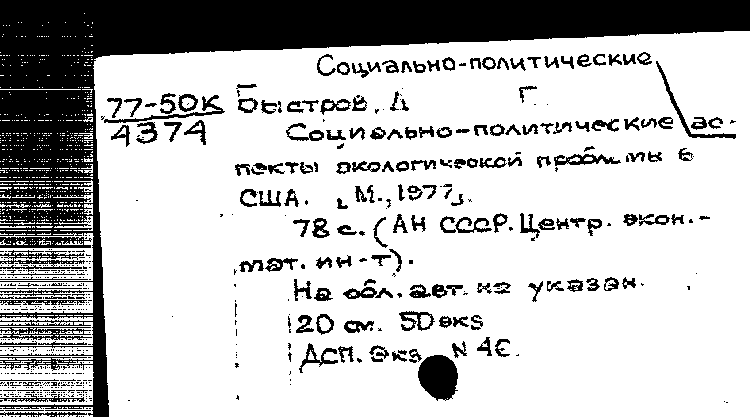 Социально-политические
77-50К Быстров, А Г.
4374 Социально-политические ас-
пекты экологической проблемы в
США. [М., 1977].
78 с. (АН СССР. Центр. экон.-
мат. ин-т).
На обл. авт. не указан.
20 см. 50 экз
ДСП. Экз N 46.